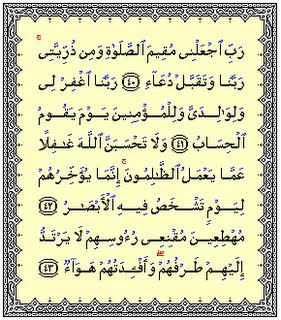 رَبِّ ٱجْعَلْنِى مُقِيمَ ٱلصَّلَوٰةِ وَمِن ذُرِّيَّتِى ۚ
رَبَّنَا وَتَقَبَّلْ دُعَآءِ ﴿٤٠﴾ رَبَّنَا ٱغْفِرْ لِى
وَلِوَٰلِدَىَّ وَلِلْمُؤْمِنِينَ يَوْمَ يَقُومُ
ٱلْحِسَابُ ﴿٤١﴾ وَلَا تَحْسَبَنَّ ٱللَّهَ غَـٰفِلًا
عَمَّا يَعْمَلُ ٱلظَّـٰلِمُونَ ۚ إِنَّمَا يُؤَخِّرُهُمْ
لِيَوْمٍ تَشْخَصُ فِيهِ ٱلْأَبْصَـٰرُ ﴿٤٢﴾
مُهْطِعِينَ مُقْنِعِى رُءُوسِهِمْ لَا يَرْتَدُّ
إِلَيْهِمْ طَرْفُهُمْ ۖ وَأَفْـِٔدَتُهُمْ هَوَآءٌ ﴿٤٣﴾